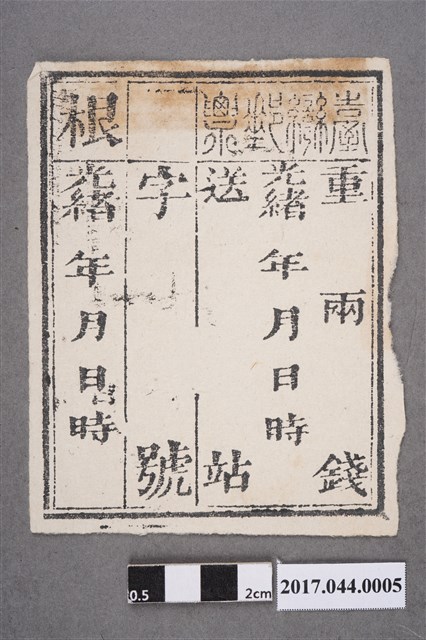 臺灣郵票
重兩錢
光緒年月日時
送站
字號
根
光緒年月日時
0.5
2cm
2017.044.0005